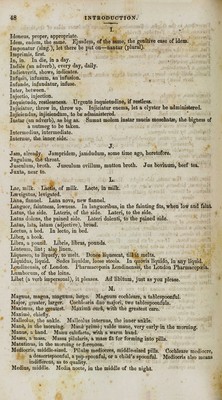 48 INTRODUCTION.
I.
Idoneus, proper, appropriate.
Idem, eadem, the same. Ejusdem, of the same, the genitive case of idem.
Imponatur (sing.), let there be put on—nantur (plural).
Imprimis, first.
In, in. In die, in a day.
Indies (an adverb), every day, daily.
Indicaverit, shows, indicates.
Infusio, infusum, an infusion.
Infunde, infundatur, infuse.
Inter, between.
Injectio, injection.
Inquietudo, restlessness. Urgente inquietudine, if restless.
Injiciatur, throw in, throw up. Injiciatur enema, let a clyster be administered.
Injiciendus, injiciendum, to be administered.
Instar (an adverb), as big as. Sumat molem instar nucis moschatæ, the bigness of
a nutmeg to be taken.
Intermedius, intermediate.
Internus, the inner side.
J.
Jam, already. Jampridem, jamdudum, some time ago, heretofore.
Jugulum, the throat.
Jusculum, broth. Jusculum ovillum, mutton broth. Jus bovinum, beef tea.
Juxta, near to.
L.
Lac, milk. Lactis, of milk. Lacte, in milk.
Lævigatus, levigated.
Lana, flannel. Lana nova, new flannel.
Languor, faintness, lowness. In languoribus, in the fainting fits, when low and faint.
Latus, the side. Lateris, of the side. Lateri, to the side.
Latus dolens, the pained side. Lateri dolenti, to the pained side.
Latus, lata, latum (adjective), broad.
Lectus, a bed. In lecto, in bed.
Liber, a book.
Libra, a pound. Libris, libras, pounds.
Linteum, lint; also linen.
Liquesco, to liquefy, to melt. Donec liquescat, till it melts.
Liquidus, liquid. Sedes liquidæ, loose stools. In quovis liquido, in any liquid.
Londinensis, of London. Pharmacopœia Londinensis, the London Pharmacopœia.
Lumborum, of the loins.
Libet (a verb impersonal), it pleases. Ad libitum, just as you please.
M.
Magnus, magna, magnum, large. Magnum cochleare, a tablespoonful.
Major, greater, larger. Cochlearia duo majori, two tablespoonfuls.
Maximus, the greatest. Maximâ curâ, with the greatest care.
Maximè, chiefly.
Malleolus, the ankle. Malleolus internus, the inner ankle.
Mane, in the morning. Mane primo; valde mane, very early in the morning.
Manus, a hand. Manu calefacta, with a warm hand.
Massa, a mass. Massa pilularis, a mass fit for forming into pills.
Matutinus, in the morning or forenoon.
Mediocris, middle-sized. Pilulæ mediocres, middle-sized pills. Cochleare mediocre,
a dessertspoonful, a pap-spoonful, or a child's spoonful. Mediocris also means
indifferent, as to quality.
Medius, middle. Media nocte, in the middle of the night.